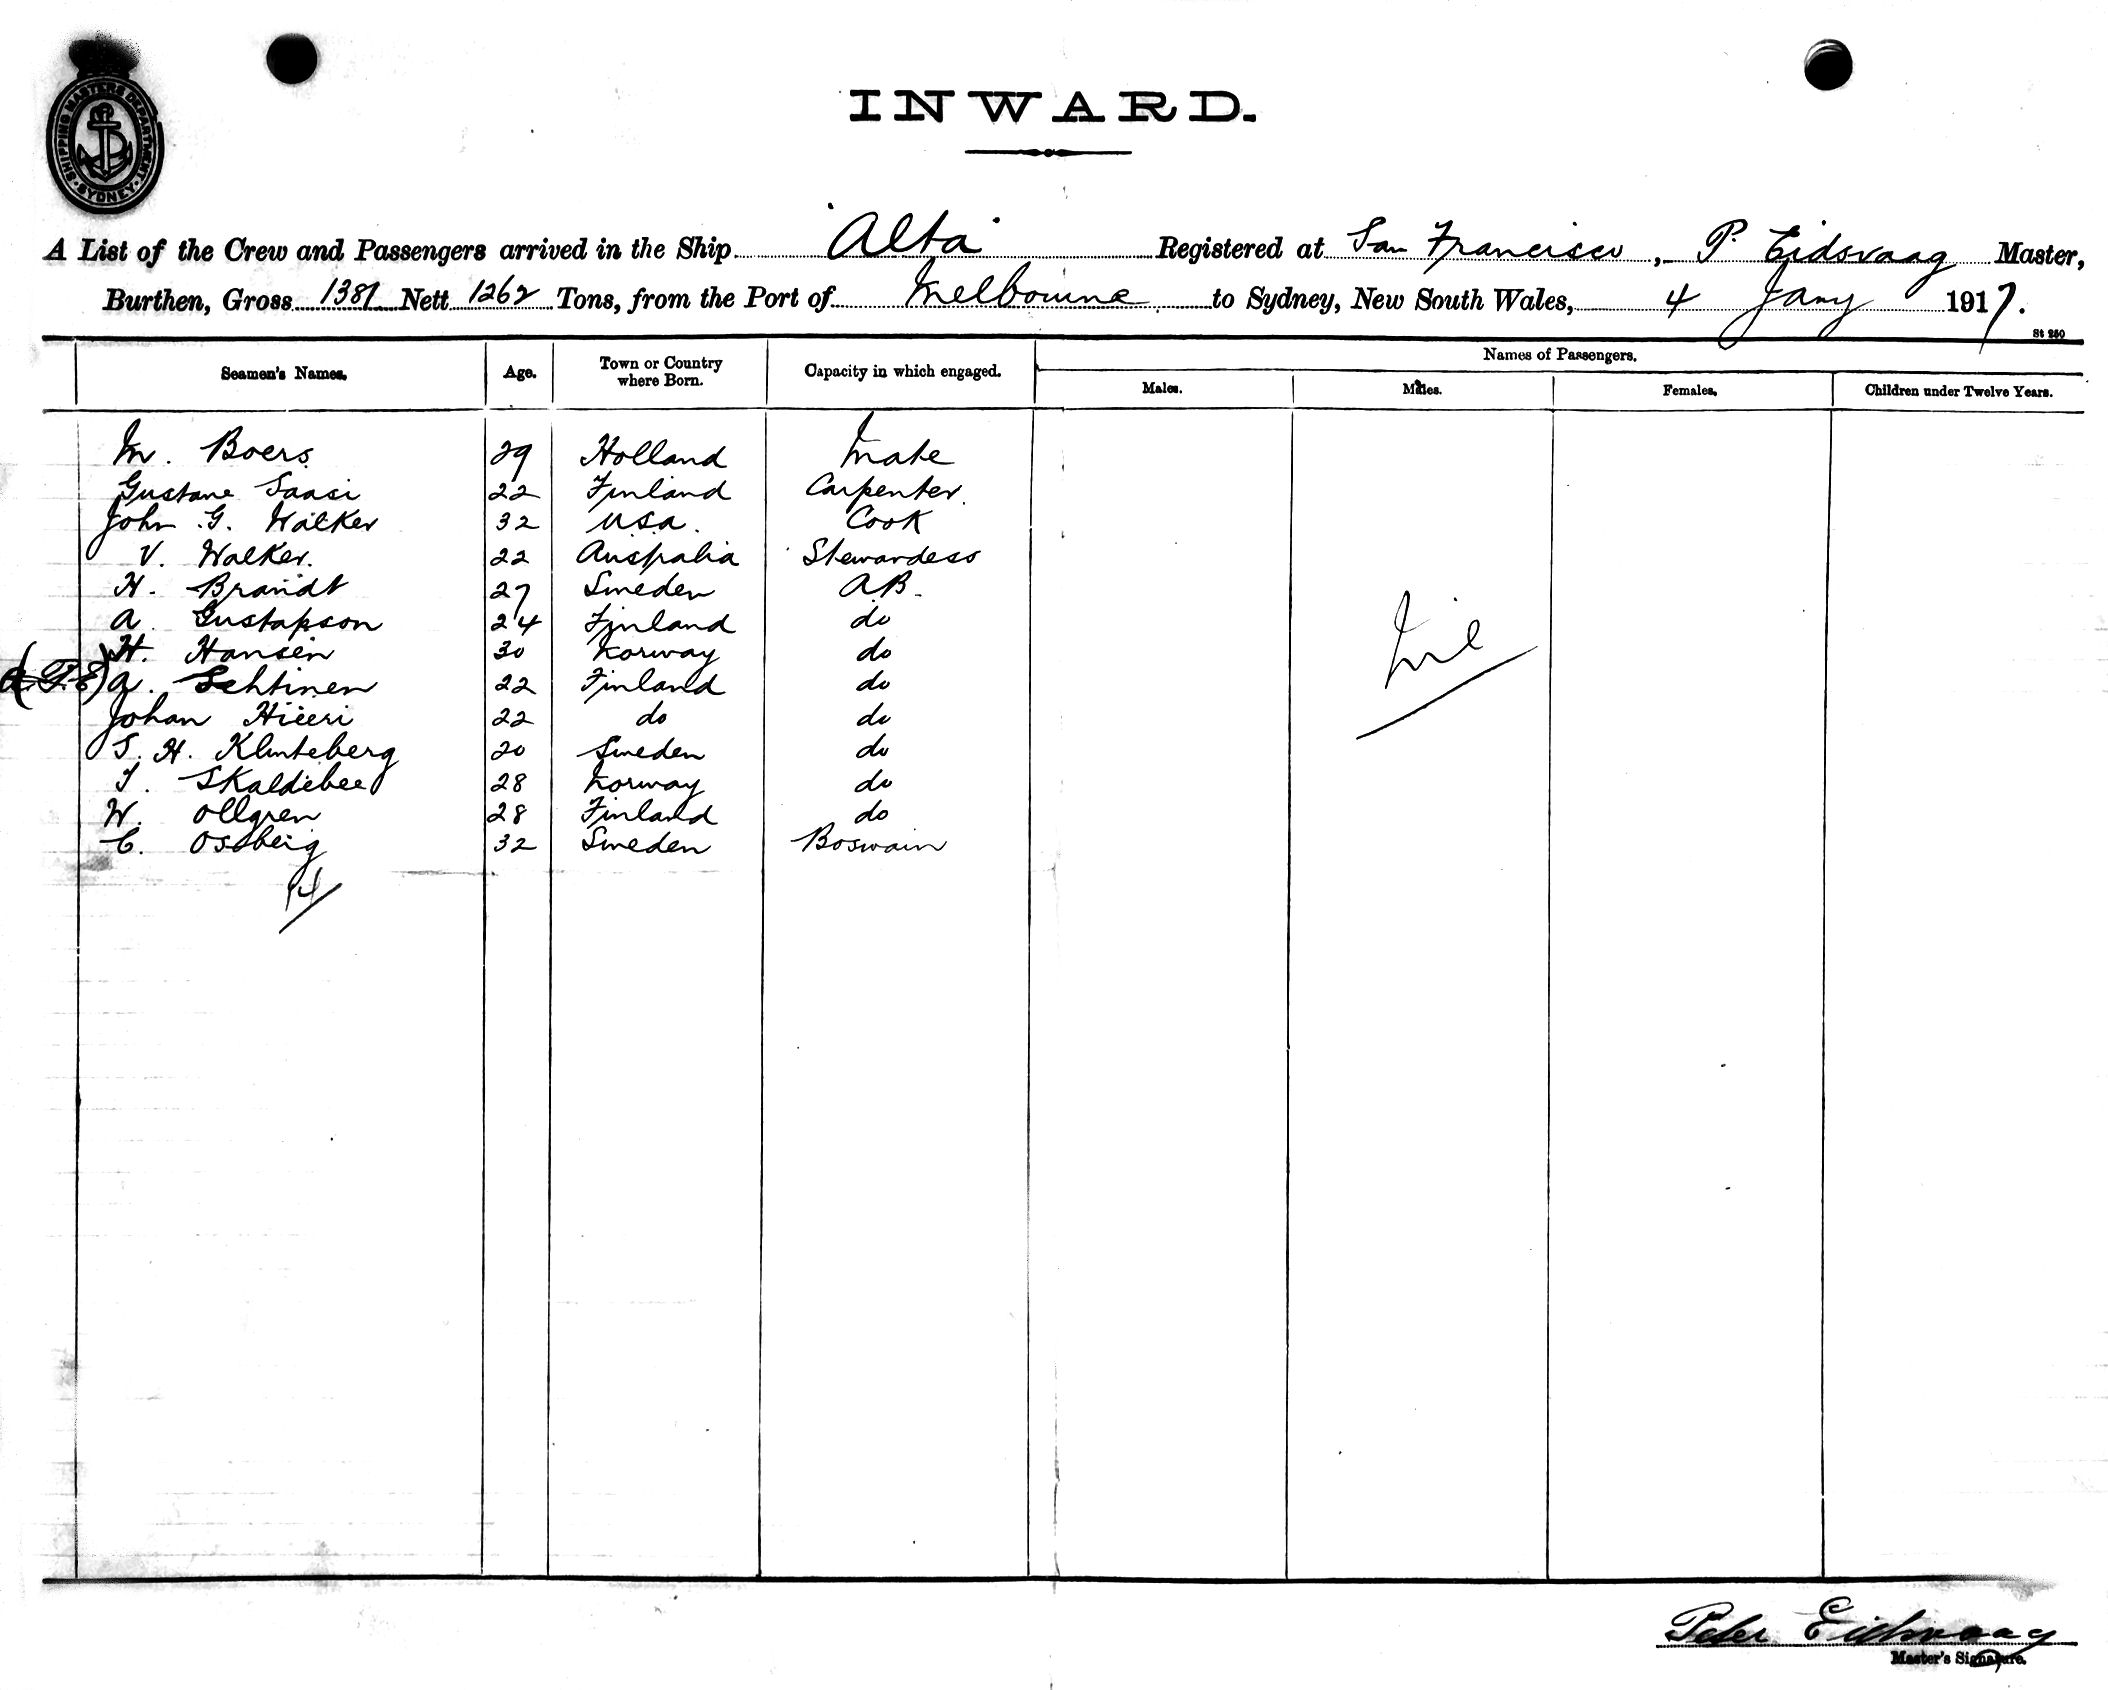 SHIPPING MASTERS DEPARTMENT
SYDNEY
INWARD.
A List of the Crew and Passengers arrived in the Ship "Alta" Registered at San Francisco, P. Eidsvaag Master,
Burthen, Gross 1381 Nett 1262 Tons, from the Port of Melbourne to Sydney, New South Wales, 4 Jany 1917.
St 250
Seamen's Names. Age. Town or Country where Born. Capacity in which engaged. Names of Passengers.
Males. Males. Females. Children under Twelve Years.
M. Boers 29 Holland Mate
Gustave Saasi 22 Finland Carpenter.
John G. Walker 32 USA. Cook
V. Walker. 22 Australia Stewardess
H. Brandt 27 Sweden A.B.
A. Gustafson 24 Finland do
H. Hansen 30 Norway do
A. Lehtinen 22 Finland do
Johan 22 do do
S. H. Klinteberg 20 Sweden do
T. Skaldebee 28 Norway do
W. Ollgren 28 Finland do
C. Ostberg 32 Sweden Boswain
14
Nil
Peter Eidsvaag
Master's Signature.